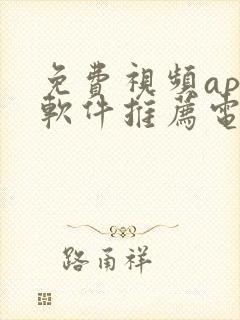 免費視頻ap
軟件推薦電
路甬祥